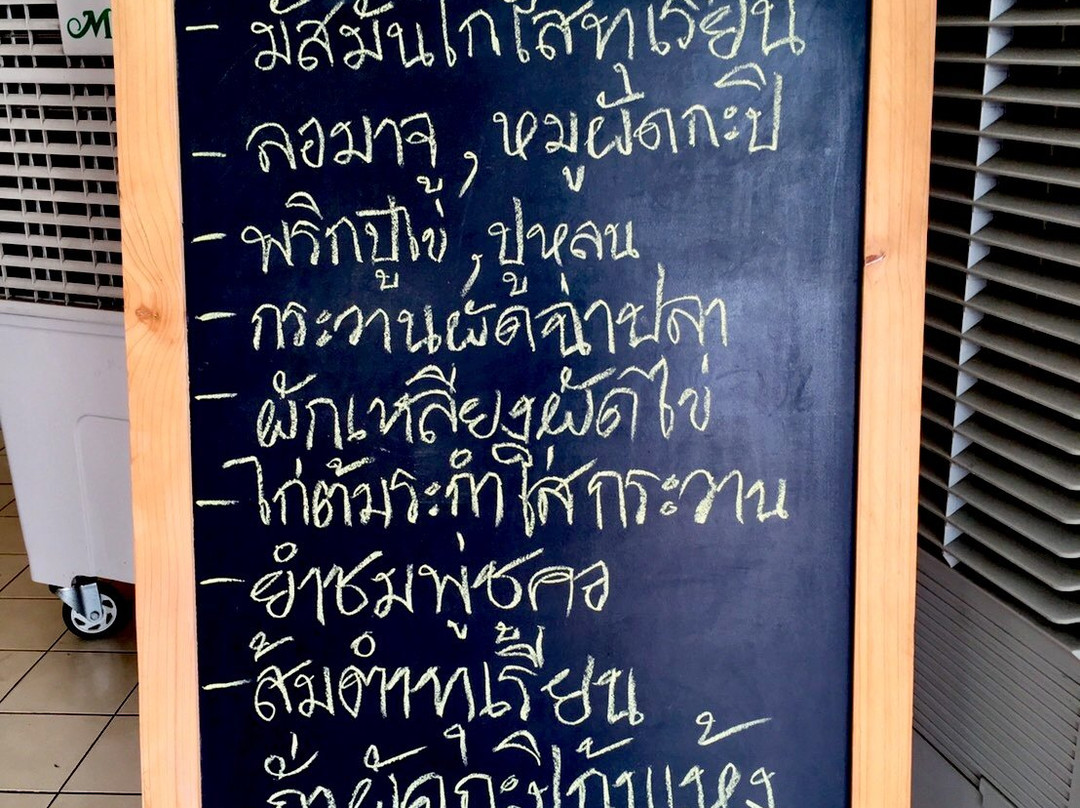 M
- มัสมั่นไก่ใส่ทุเรียน
- ลอมาจู, หมูผัดกะปิ
- พริกปูไข่, ปูหลน
- กระวานผัดฉ่าปลา
- ผักเหลียงผัดไข่
- ไก่ต้มระกำใส่กระวาน
- ยำชมพู่ชคอ
- ส้มตำทุเรียน
ผัดกะปิกุ้งแห้ง